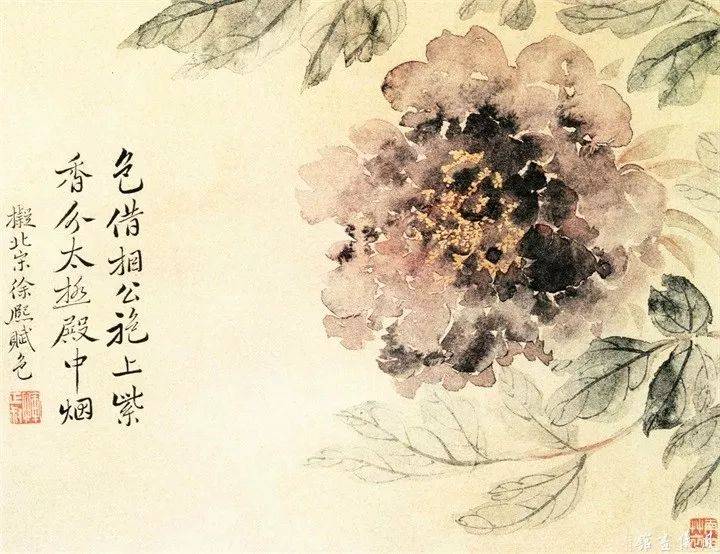 色借相公袍上紫
香分太極殿中烟
擬北宋徐熙賦色